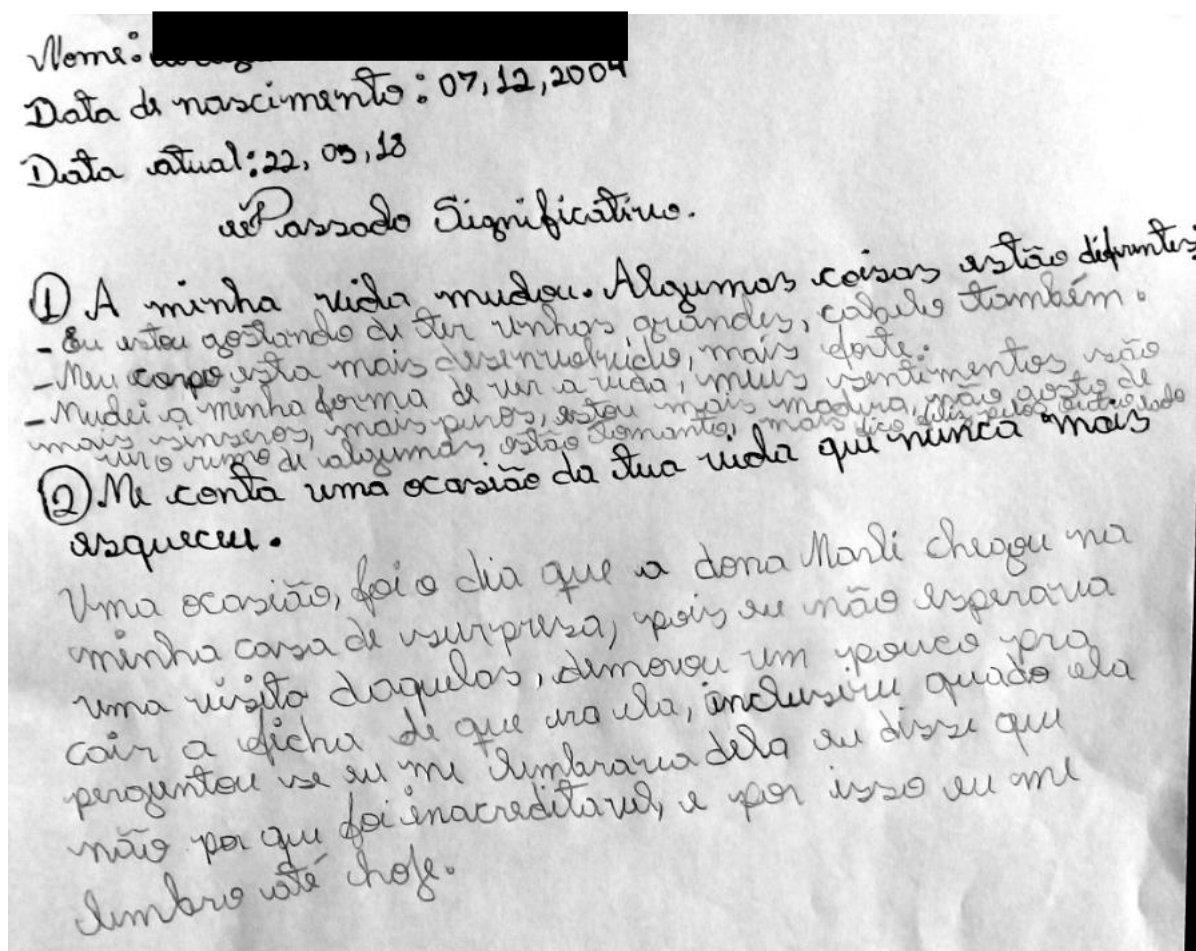 Nome:
Data de nascimento: 07,12,2004
Data atual: 22, 09, 18
Passado Significativo.
① A minha vida mudou. Algumas coisas estão difrentes:
- Eu estou gostando de ter unhas grandes, cabelo também.
- Meu corpo esta mais desenvolvido, mais forte.
- Mudei a minha forma de ver a vida, meus sentimentos são
mais sinseros, mais puros, estou mais madura, não gosto de
o rumo de algumas estão tomanto, mas fico feliz pelo outro lado
② Me conta uma ocasião da tua vida que nunca mais
esqueceu.
Uma ocasião, foi o dia que a dona Marli chegou na
minha casa de surpresa, pois eu não esperava
uma visita daquelas, demorou um pouco pra
cair a ficha de que era ela, inclusive quado ela
perguntou se eu me lembrava dela eu disse que
não por que foi inacreditavel, e por isso eu me
lembro até hoje.